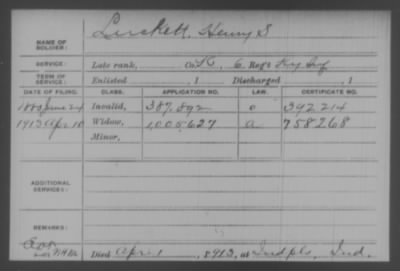 NAME OF SOLDIER: Luckett, Henry S
SERVICE: Late rank, Co. K, 6 Reg't Ky Inf
TERM OF SERVICE: Enlisted , 1 Discharged , 1
DATE OF FILING. CLASS. APPLICATION NO. LAW. CERTIFICATE NO.
1880 June 24 Invalid, 387,892 392214
1913 Apr 18 Widow, 1,005627 a 758268
Minor,
ADDITIONAL SERVICES:
REMARKS:
Died Apr 1, 1913, at Indpls, Ind.